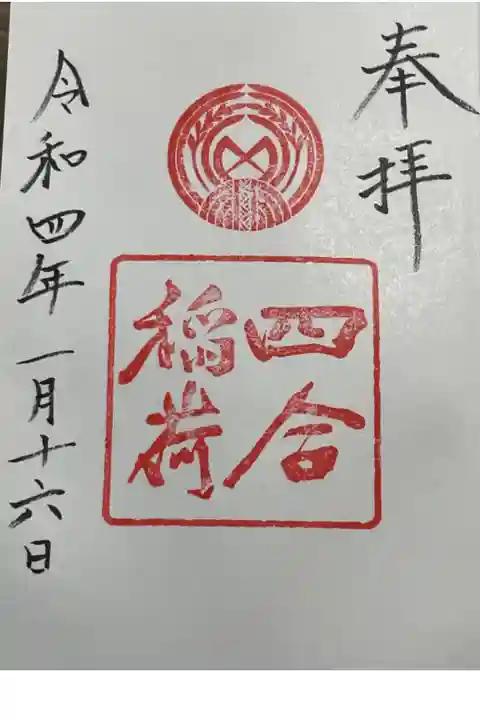 奉拝
四合
稲荷
令和四年一月十六日